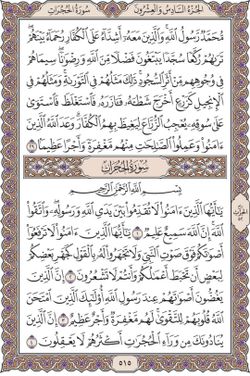 سُورَةُ الحُجُرَاتِ
الجُزْءُ السَّادِسُ وَالعِشْرُونَ
مُّحَمَّدٌ رَّسُولُ ٱللَّهِ وَٱلَّذِينَ مَعَهُۥٓ أَشِدَّآءُ عَلَى ٱلْكُفَّارِ رُحَمَآءُ بَيْنَهُمْ
تَرَىٰهُمْ رُكَّعًا سُجَّدًا يَبْتَغُونَ فَضْلًا مِّنَ ٱللَّهِ وَرِضْوَٰنًا سِيمَاهُمْ
فِى وُجُوهِهِم مِّنْ أَثَرِ ٱلسُّجُودِ ذَٰلِكَ مَثَلُهُمْ فِى ٱلتَّوْرَىٰةِ وَمَثَلُهُمْ فِى
ٱلْإِنجِيلِ كَزَرْعٍ أَخْرَجَ شَطْـَٔهُۥ فَـَٔازَرَهُۥ فَٱسْتَغْلَظَ فَٱسْتَوَىٰ
عَلَىٰ سُوقِهِۦ يُعْجِبُ ٱلزُّرَّاعَ لِيَغِيظَ بِهِمُ ٱلْكُفَّارَ وَعَدَ ٱللَّهُ ٱلَّذِينَ
ءَامَنُوا۟ وَعَمِلُوا۟ ٱلصَّٰلِحَٰتِ مِنْهُم مَّغْفِرَةً وَأَجْرًا عَظِيمًۢا ٢٩
سُورَةُ الحُجُرَاتِ
بِسْمِ ٱللَّهِ ٱلرَّحْمَٰنِ ٱلرَّحِيمِ
يَٰٓأَيُّهَا ٱلَّذِينَ ءَامَنُوا۟ لَا تُقَدِّمُوا۟ بَيْنَ يَدَىِ ٱللَّهِ وَرَسُولِهِۦ وَٱتَّقُوا۟
ٱللَّهَ إِنَّ ٱللَّهَ سَمِيعٌ عَلِيمٌ ١ يَٰٓأَيُّهَا ٱلَّذِينَ ءَامَنُوا۟ لَا تَرْفَعُوٓا۟
أَصْوَٰتَكُمْ فَوْقَ صَوْتِ ٱلنَّبِىِّ وَلَا تَجْهَرُوا۟ لَهُۥ بِٱلْقَوْلِ كَجَهْرِ بَعْضِكُمْ
لِبَعْضٍ أَن تَحْبَطَ أَعْمَٰلُكُمْ وَأَنتُمْ لَا تَشْعُرُونَ ٢ إِنَّ ٱلَّذِينَ
يَغُضُّونَ أَصْوَٰتَهُمْ عِندَ رَسُولِ ٱللَّهِ أُو۟لَٰٓئِكَ ٱلَّذِينَ ٱمْتَحَنَ
ٱللَّهُ قُلُوبَهُمْ لِلتَّقْوَىٰ لَهُم مَّغْفِرَةٌ وَأَجْرٌ عَظِيمٌ ٣ إِنَّ ٱلَّذِينَ
يُنَادُونَكَ مِن وَرَآءِ ٱلْحُجُرَٰتِ أَكْثَرُهُمْ لَا يَعْقِلُونَ ٤
٥١٥